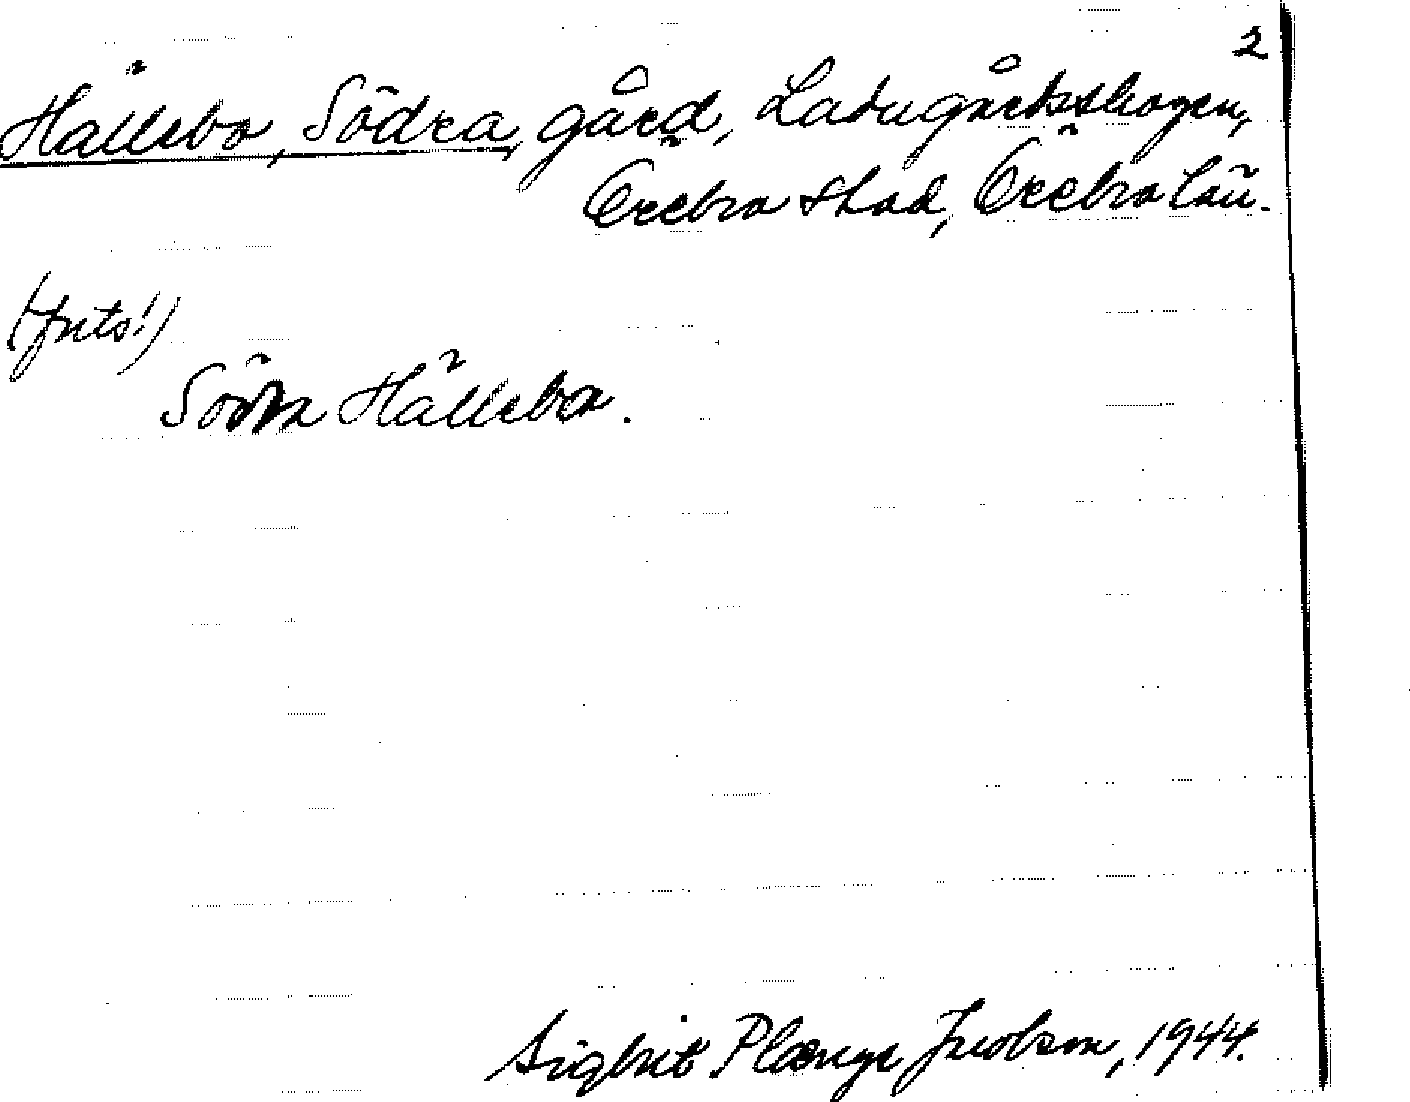 2
Hällebo, Södra, gård, Ladugårdsskogen,
Örebro stad, Örebro län.
(forts!)
Södra Hällebo.
Sigbrit Plænge Jacobson, 1944.